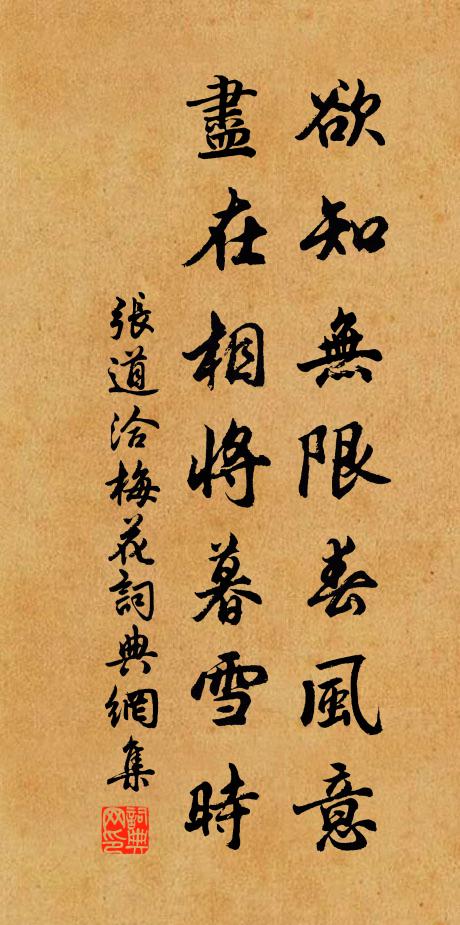 欲知無限春風意
盡在相將暮雪時
張道洽梅花詞典網集
詞典网印